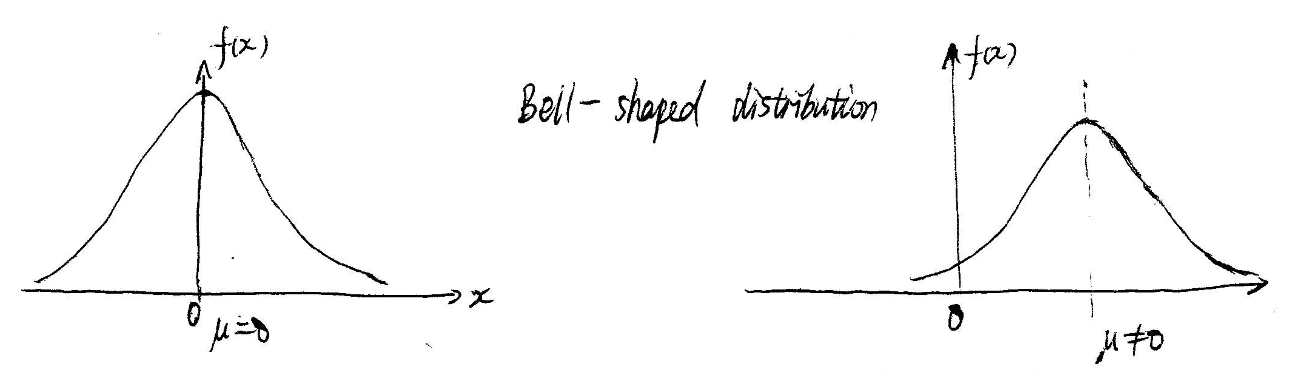 f(x)
Bell-shaped distribution
f(x)
0
x
μ=0
0
μ≠0